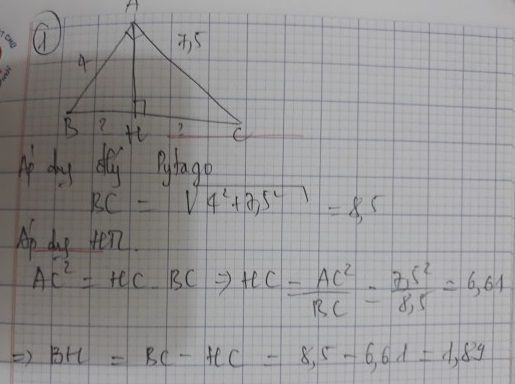 1
A
4
7,5
B ? H ? C
Áp dụg đlý Pytago
BC = √4²+7,5² = 8,5
Áp dụg HTL.
AC² = HC . BC ⇒ HC = AC²/BC = 7,5²/8,5 = 6,61
⇒ BH = BC − HC = 8,5 − 6,61 = 1,89